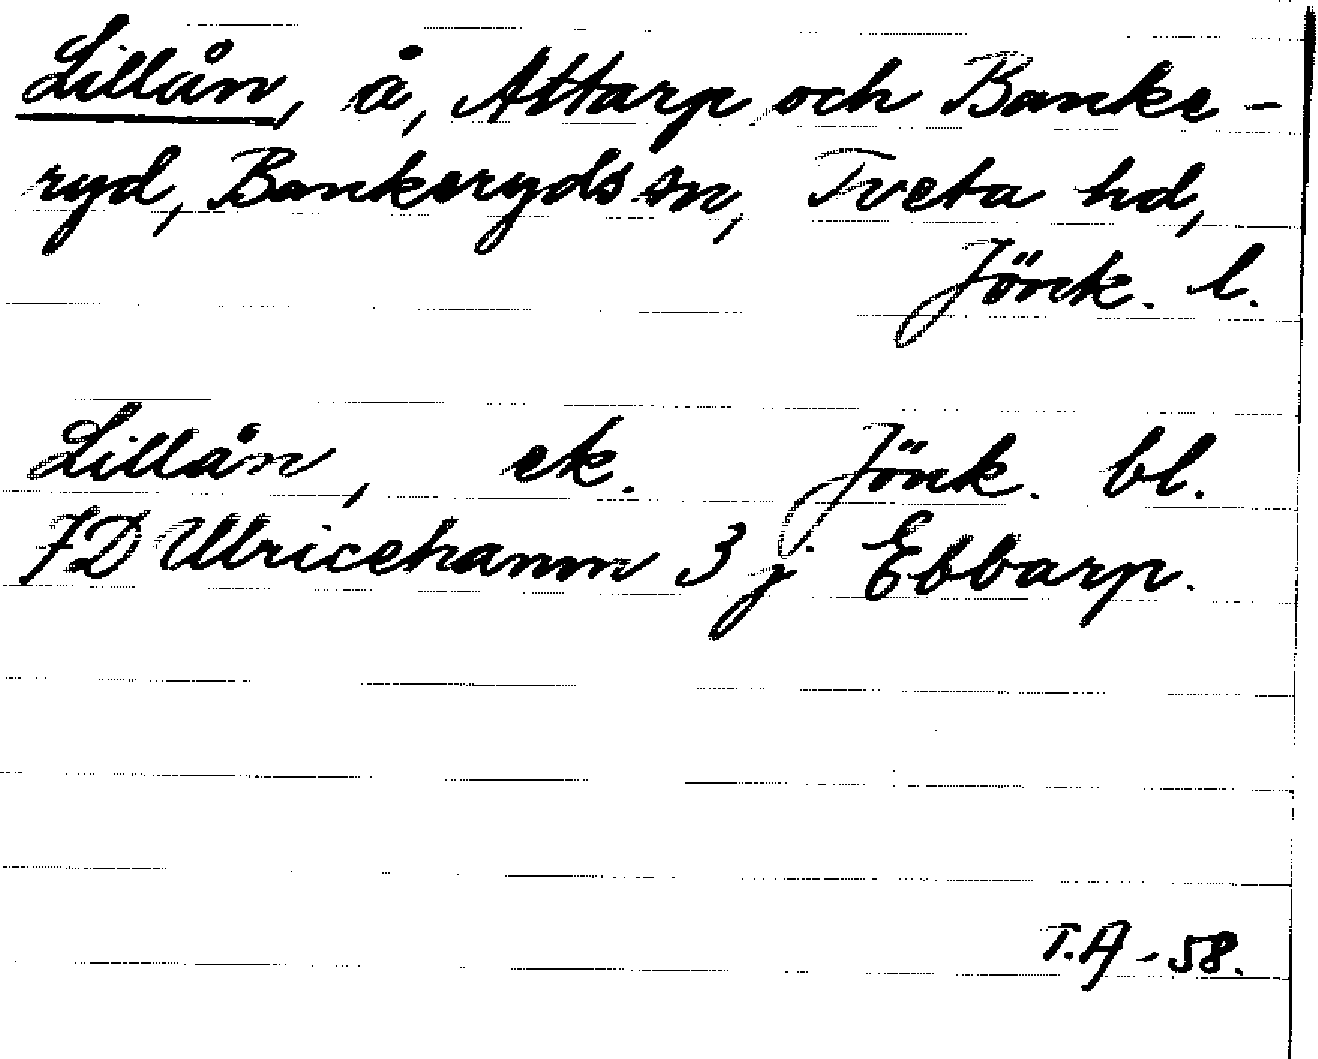 Lillån, å, Attarp och Banke-
ryd, Bankeryds sn, Tveta hd,
Jönk. l.
Lillån, ek. Jönk. bl.
7D Ulricehamn 3 j Ebbarp.
T.A -58.